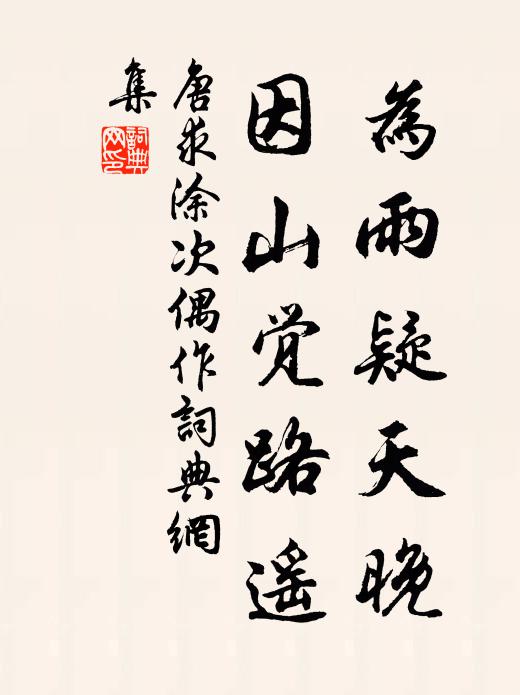 為雨疑天晚
因山觉路遥
唐求涂次偶作詞典網
集
詞典
网印